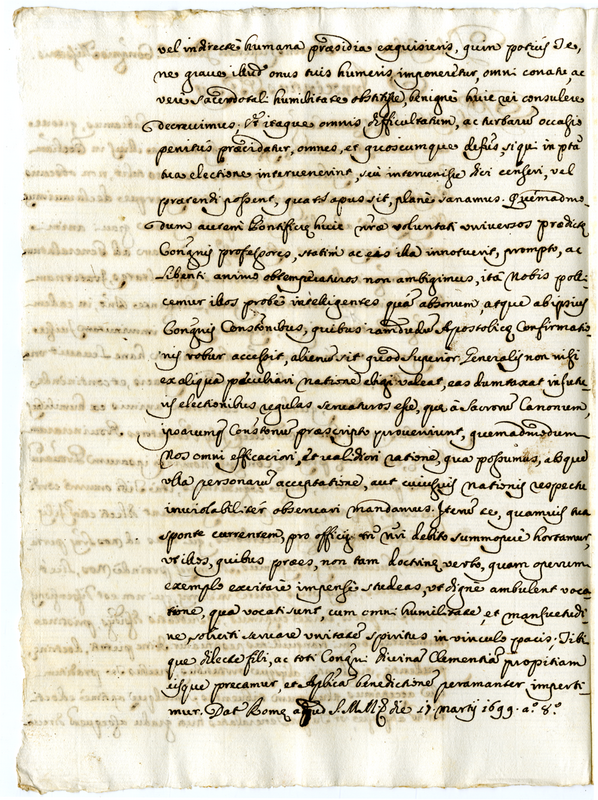 vel indirectè humana præsidia exquisieris, quin potius Te,
ne graue illud onus tuis humeris imponeretur, omni conatu, ac
verè sacerdotali humilitate obstitisse, benignè huic rei consulere
decreuimus. Vt itaque omnis difficultatum, ac turbarum occasio
penitus præcidatur, omnes, et quoscumque defus, siqui in ptâ
tua electione intervenerint, seu intervenisse dici censeri, vel
prætendi possent, quats opus sit, planè sanamus. Quemadmo
dum autem Pontificiæ huic nræ voluntati vniuersos prædictæ
Congnis professores, statim ac eis illa innotuerit, prompto, ac
libenti animo obtemperaturos non ambigimus, ità Nobis polli
cemur illos probè intelligentes quâ absonum, atque ab ipsius
Congnis Constonibus, quibus iamdudum Apostolicæ Confirmatio
nis robur accessit, alienum sit quod Superior Generalis non nisi
ex aliqua peculiari natione eligi valeat, eas dumtaxat in futu
ris electionibus regulas seruaturos esse, quæ à Sacrorum Canonum,
ipsarumq Constonum præscripto proueniunt, quemadmodum
Nos omni efficaciori, et validiori ratione, qua possumus, absque
vlla personarum acceptatione, aut cuiusuis nationis respectu
inuiolabiliter obseruari mandamus. Iterum te, quamuis tua
sponte currentem, pro officij tn nri debito summoque hortamur,
vt illos, quibus præes, non tam doctrinæ verbo, quam operum
exemplo excitare impensè studeas, vt dignè ambulent voca
tione, qua vocati sunt, cum omni humilitate, et mansuetudi
ne soliciti seruare vnitatem spiritus in vinculo pacis; Tibi
que dilecte fili, ac toti Congni diuinam Clementiam propitiam
iisque precamur, et Aplicam benedictionem peramanter imperti
mur. Dat Romæ apud S. M. M. die 17 martij 1699. aº. 8º.